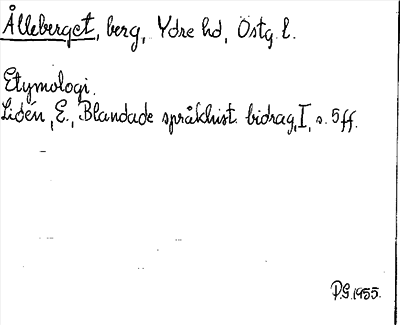 Ålleberget, berg, Ydre hd, Östg. l.
Etymologi.
Lidén, E., Blandade språkhist. bidrag, I, s. 5 ff.
P.G. 1955.